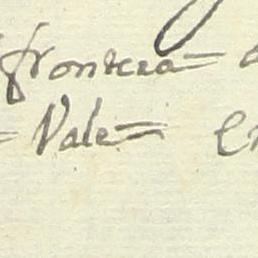 frontera=
= Vale=